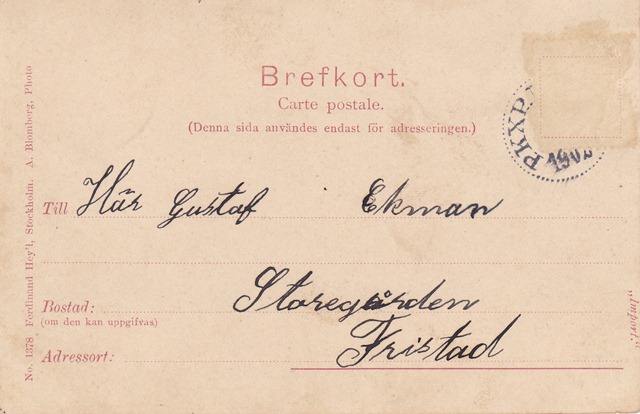 Brefkort.
Carte postale.
(Denna sida användes endast för adresseringen.)
PKXP
190
Till Här Gustaf Ekman
Bostad: Storegården
(om den kan uppgifvas)
Adressort: Fristad
No. 1378 Ferdinand Hey'l, Stockholm. A. Blomberg, Photo
„Import.“